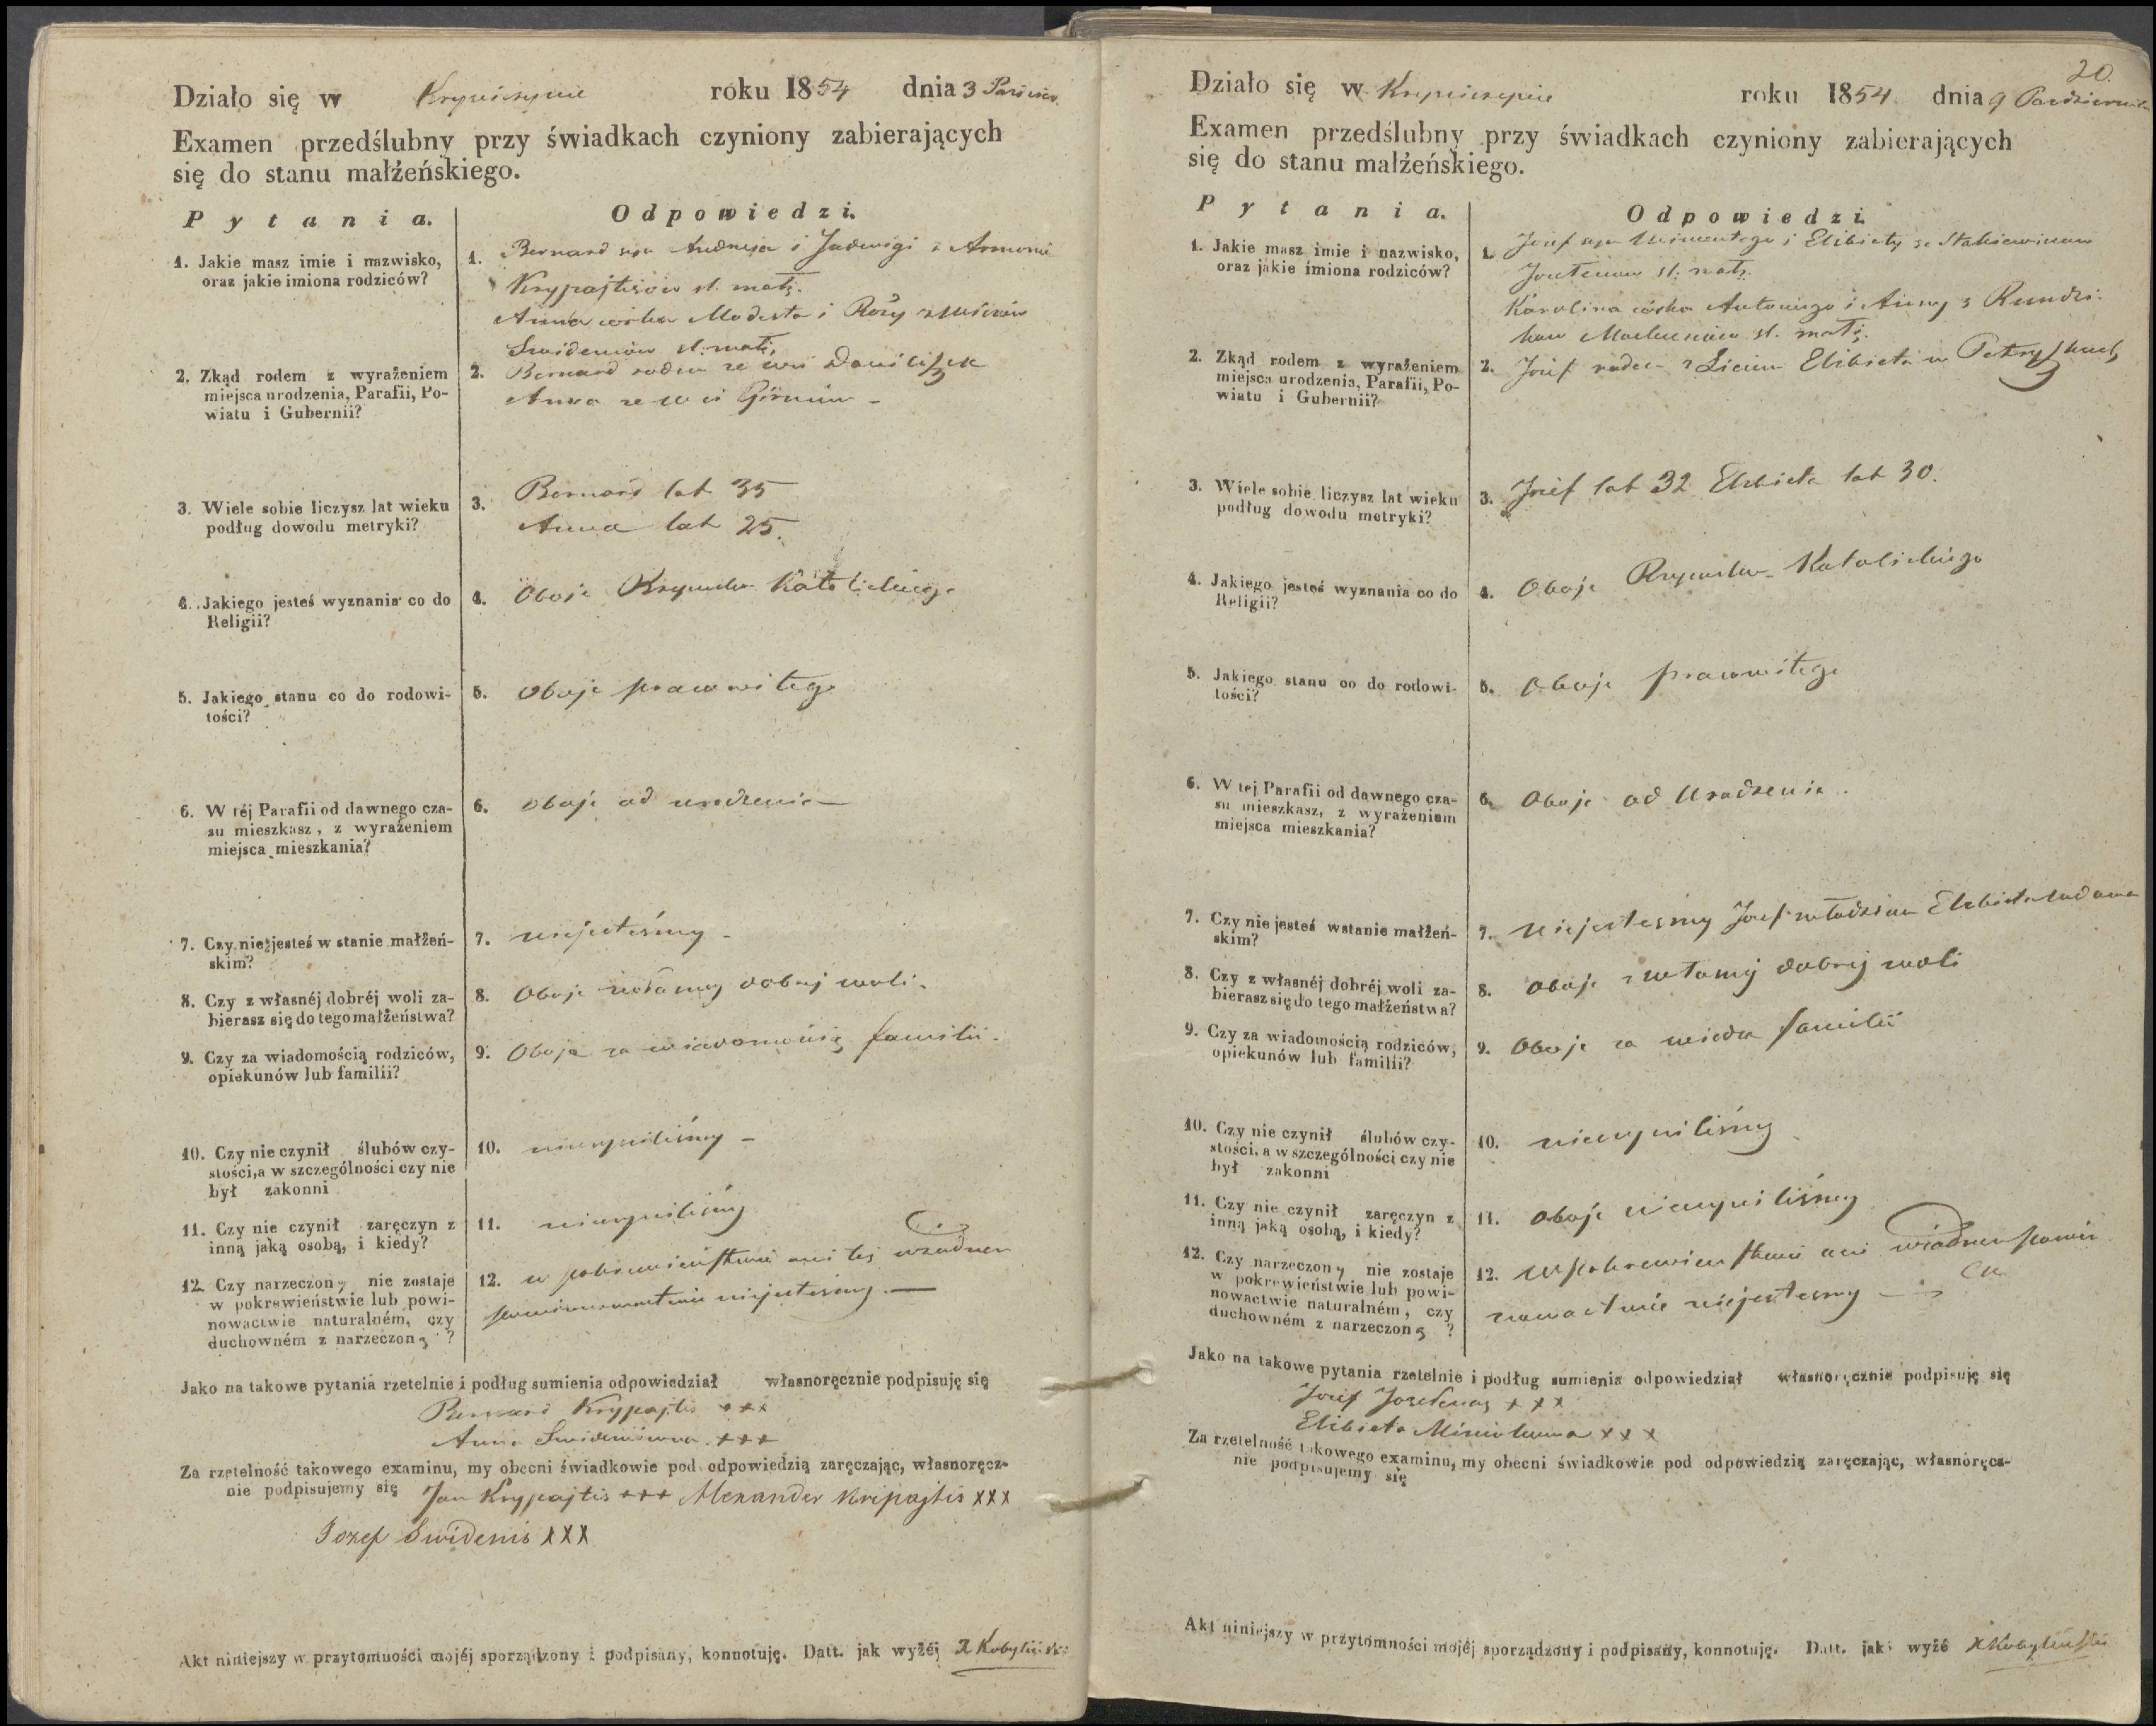 Działo się w Krypiszynie roku 1854 dnia 3
Examen przedślubny przy świadkach czyniony zabierających
się do stanu małżeńskiego.
Pytania. Odpowiedzi.
1. Jakie masz imie i nazwisko,
oraz jakie imiona rodziców?
1. Bernard syn Andrzeja i Jadwigi z
Krypajtisów sł. małż.
Anna córka Modesta i Róży z
Swideniów sł. małż.
2. Zkąd rodem z wyrażeniem
miejsca urodzenia, Parafii, Po-
wiatu i Gubernii?
2. Bernard rodem ze wsi Daniliszek
Anna ze wsi
3. Wiele sobie liczysz lat wieku
podług dowodu metryki?
3. Bernard lat 35
Anna lat 25.
4. Jakiego jesteś wyznania co do
Religii?
4. Oboje Rzymsko Katolickiego
5. Jakiego stanu co do rodowi-
tości?
5. Oboje prawowitego
6. W téj Parafii od dawnego cza-
su mieszkasz, z wyrażeniem
miejsca mieszkania?
6. Oboje od urodzenia
7. Czy nie jesteś w stanie małżeń-
skim?
7. niejesteśmy
8. Czy z własnéj dobréj woli za-
bierasz się do tego małżeństwa?
8. Oboje dobrej woli
9. Czy za wiadomością rodziców,
opiekunów lub familii?
9. Oboje za wiadomością familii
10. Czy nie czynił ślubów czy-
stości, a w szczególności czy nie
był zakonni
10. nieczyniliśmy
11. Czy nie czynił zaręczyn z
inną jaką osobą, i kiedy?
11. nieczyniliśmy
12. Czy narzeczony nie zostaje
w pokrewieństwie lub powi-
nowactwie naturalném, czy
duchowném z narzeczoną ?
12. w pokrewieństwie ani też wżadnem
powinowactwie niejesteśmy
Jako na takowe pytania rzetelnie i podług sumienia odpowiedział własnoręcznie podpisuję się
Bernard Krypajtis +++
Anna Swideniówna +++
Za rzetelność takowego examinu, my obecni świadkowie pod odpowiedzią zaręczając, własnoręcz-
nie podpisujemy się Jan Krypajtis +++ Alexander Kripajtis XXX
Jozef Swidenis XXX
Akt niniejszy w przytomności mojéj sporządzony i podpisany, konnotuję. Datt. jak wyżéj X Kobyliński
20.
Działo się w Krypiszynie roku 1854 dnia 9 Pazdziernika
Examen przedślubny przy świadkach czyniony zabierających
się do stanu małżeńskiego.
Pytania. Odpowiedzi.
1. Jakie masz imie i nazwisko,
oraz jakie imiona rodziców?
1. Josef syn Wincentego i Elzbiety ze
sł. małż.
Karolina córka Antoniego i Anny z
sł. małż.
2. Zkąd rodem z wyrażeniem
miejsca urodzenia, Parafii, Po-
wiatu i Gubernii?
2. Josef rodem z Elzbieta w
3. Wiele sobie liczysz lat wieku
podług dowodu metryki?
3. Josef lat 32 Elzbieta lat 30.
4. Jakiego jesteś wyznania co do
Religii?
4. Oboje Rzymsko Katolickiego
5. Jakiego stanu co do rodowi-
tości?
5. Oboje prawowitego
6. W tej Parafii od dawnego cza-
su mieszkasz, z wyrażeniem
miejsca mieszkania?
6. Oboje od Urodzenia.
7. Czy nie jesteś wstanie małżeń-
skim?
7. niejestesmy Josef młodzian Elzbieta wdowa
8. Czy z własnéj dobréj woli za-
bierasz się do tego małżeństwa?
8. Oboje z własnej dobrej woli
9. Czy za wiadomością rodziców,
opiekunów lub familii?
9. Oboje za wiedzą familii
10. Czy nie czynił ślubów czy-
stości, a w szczególności czy nie
był zakonni
10. nieczyniliśmy
11. Czy nie czynił zaręczyn z
inną jaką osobą, i kiedy?
11. Oboje nieczyniliśmy
12. Czy narzeczony nie zostaje
w pokrewieństwie lub powi-
nowactwie naturalném, czy
duchowném z narzeczoną ?
12. w pokrewieństwie ani wżadnem powi
nowactwie niejestesmy
Jako na takowe pytania rzetelnie i podług sumienia odpowiedział własnoręcznie podpisuję się
Josef +++
Elzbieta XXX
Za rzetelność takowego examinu, my obecni świadkowie pod odpowiedzią zaręczając, własnoręcz-
nie podpisujemy się
Akt niniejszy w przytomności mojéj sporządzony i podpisany, konnotuję. Datt. jak wyżé X Kobyliński